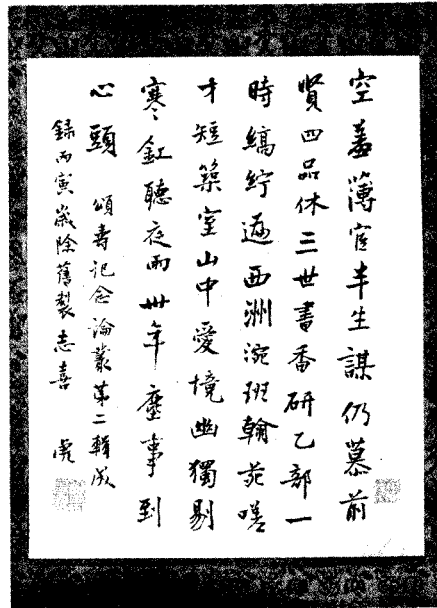 空羞薄宦半生謀仍慕前
賢四品休三世書香研乙部一
時縞紵遍西洲濫班翰苑嗟
才短築室山中愛境幽獨剔
寒釭聽夜雨卅年塵事到
心頭 頌壽記念論叢第二輯成
錄丙寅歲除舊製志喜 虎